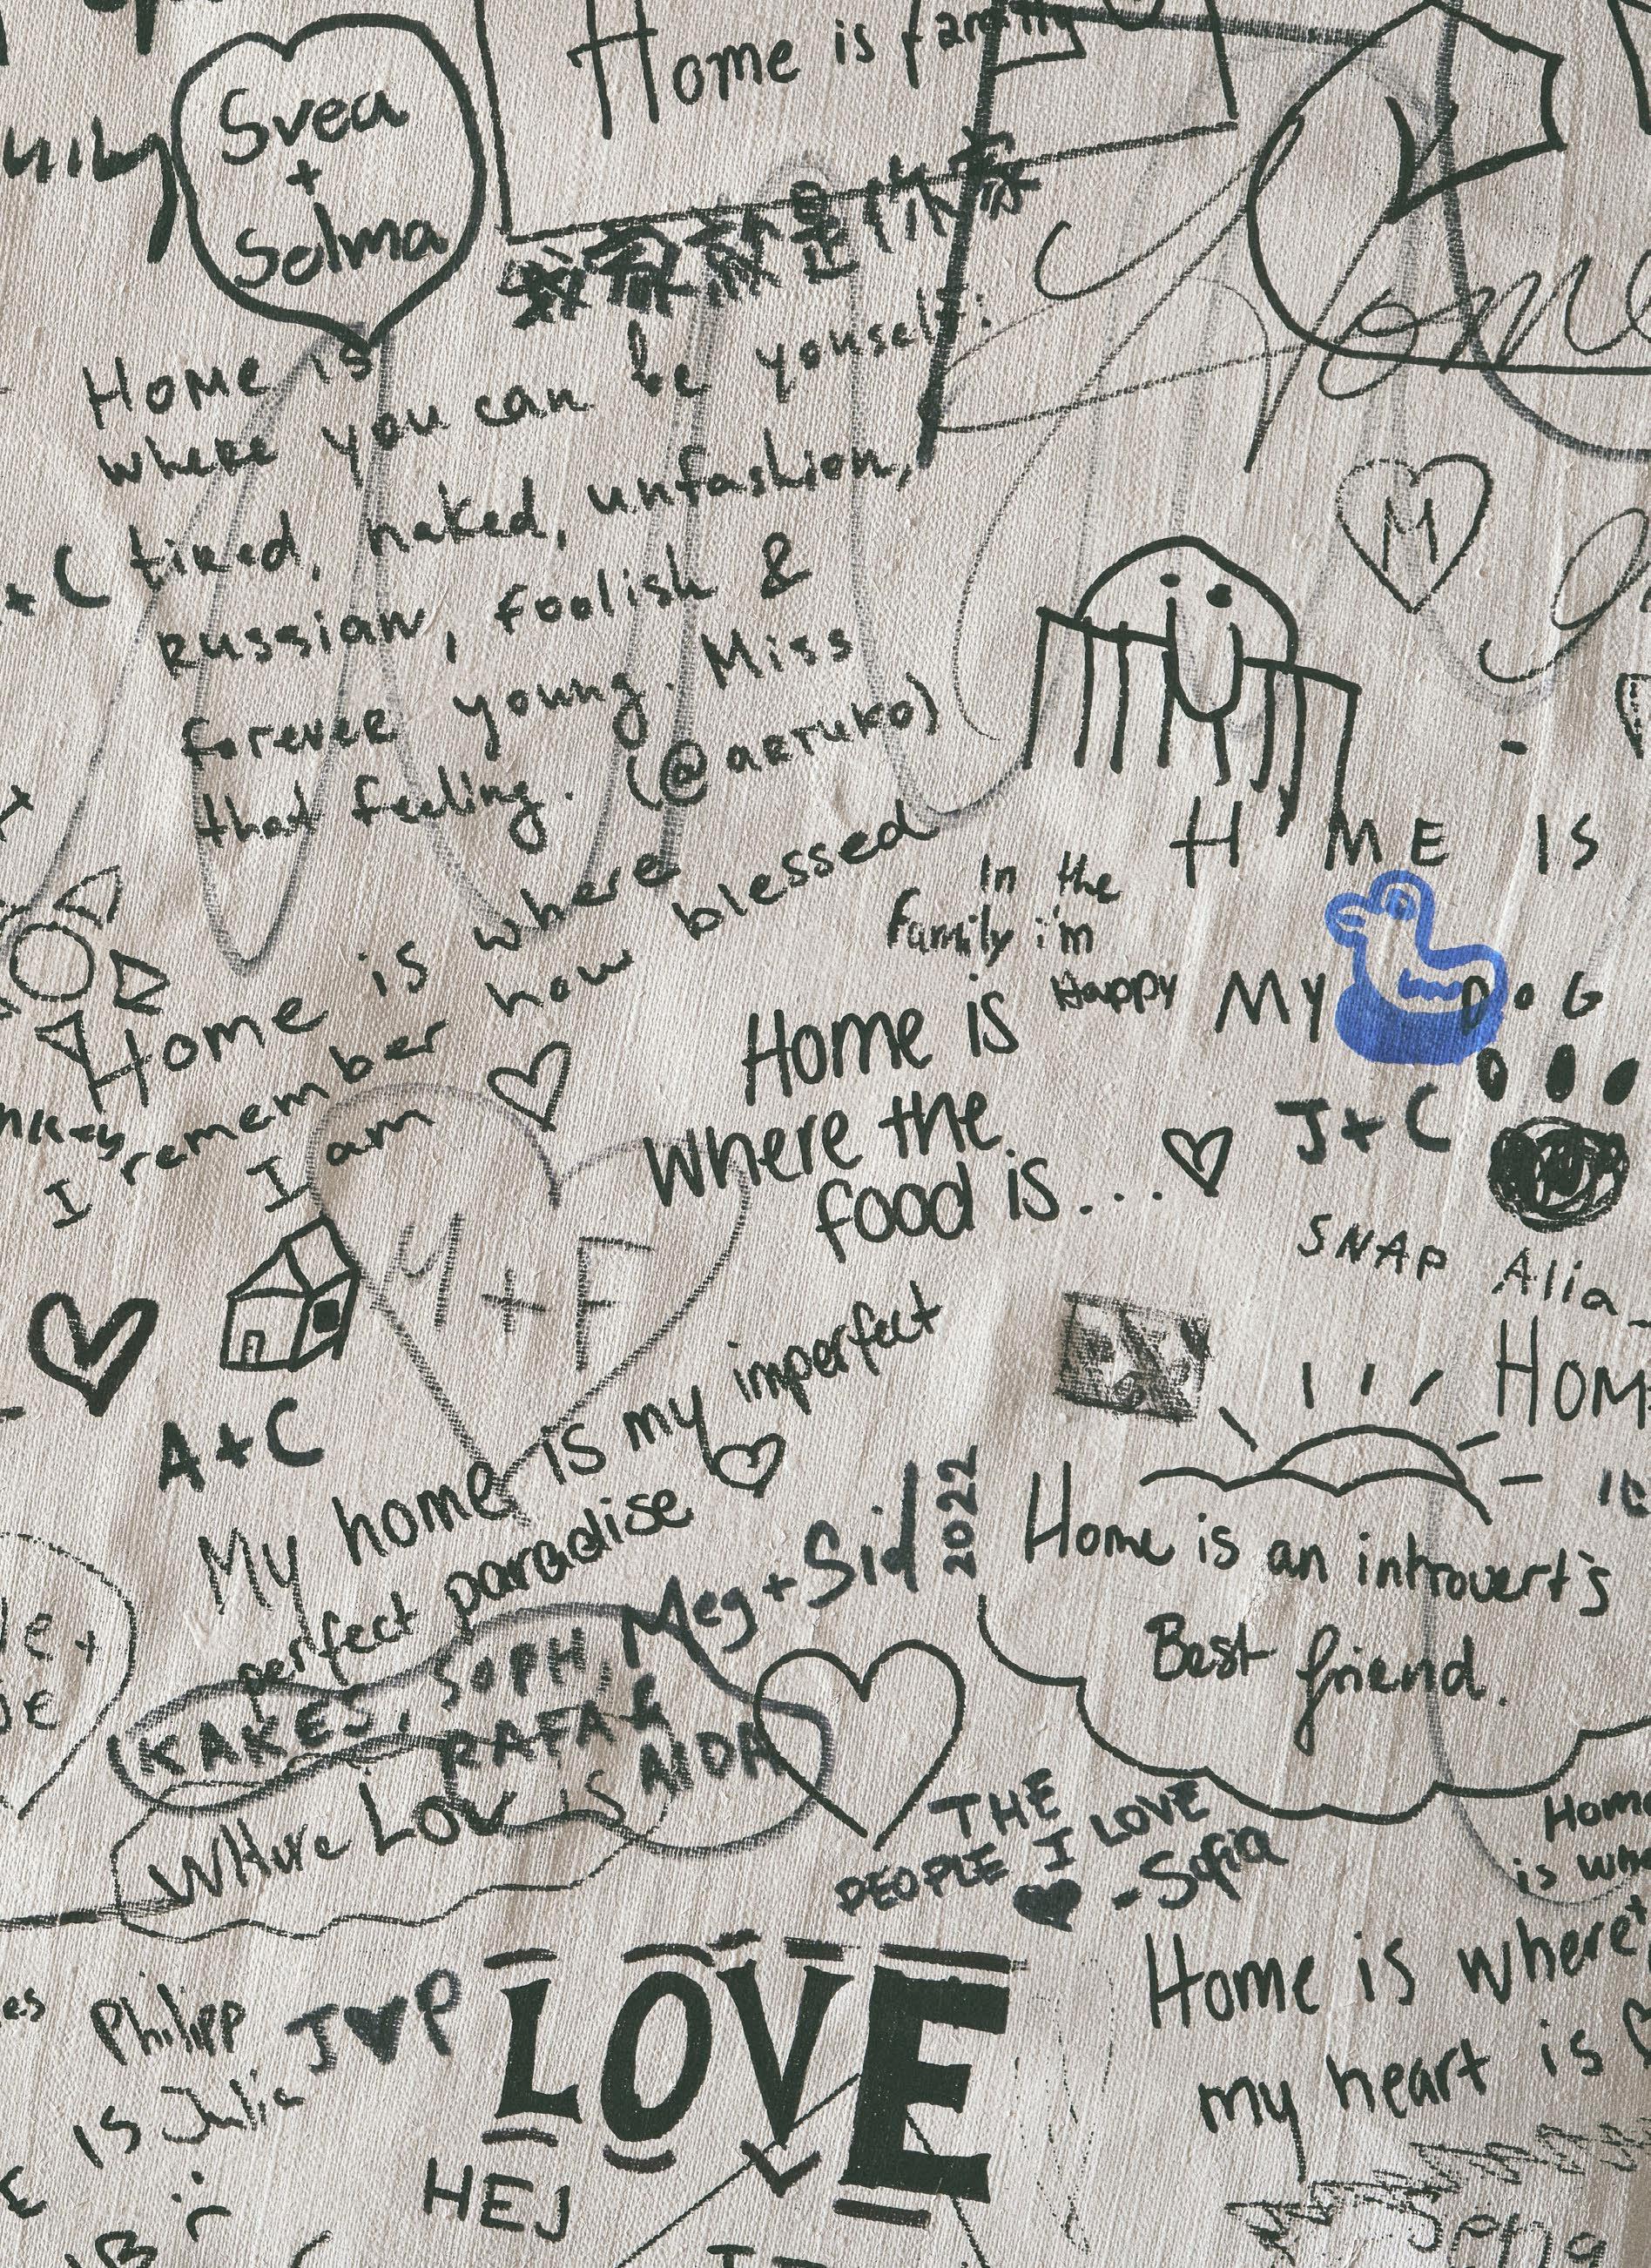 Home is family
Svea
+
Selma
Home is
where you can be yourself:
tired, naked, unfashion,
russian, foolish &
forever young. Miss
that feeling. (@arturo)
M
H ME IS
MY DOG
In the
family i'm
Happy
Home is where
I remember how blessed
I am
Home is
Where the
food is...
J+C
SNAP Alia
Y+F
A+C
My home is my imperfect
perfect paradise
Meg+Sid 2022
Home is an introvert's
Best friend.
KAKES, SOPH,
RAFA &
AIDA
WHere Love is
THE
PEOPLE I LOVE
- Sofia
Home is where
my heart is
Philipp J♥P
is Julia
LOVE
HEJ